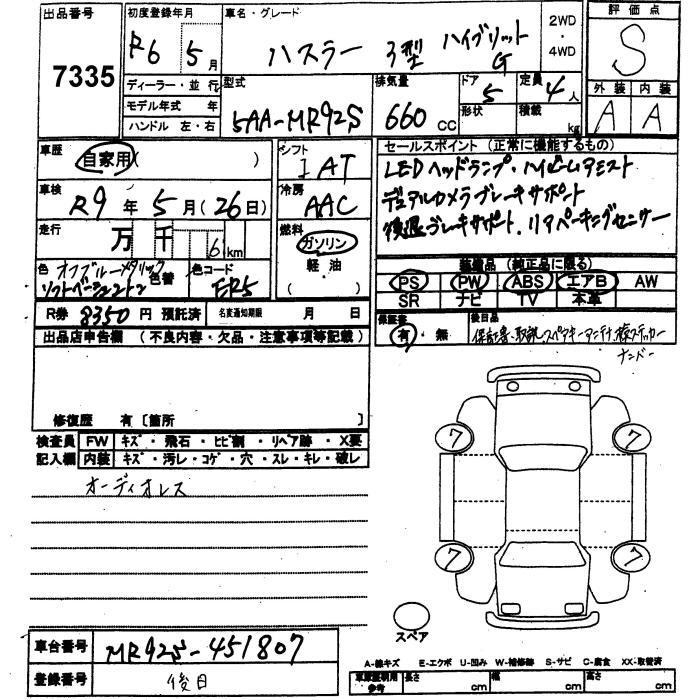 出品番号 初度登録年月 車名・グレード 2WD ・ 4WD 評価点
7335 R6 5月 ハスラー J型 ハイブリットG S
ディーラー・並行 型式 排気量 ドア 5 定員 4人 外装 内装
モデル年式 年 5AA-MR92S 660 CC 形状 積載 kg A A
ハンドル 左・右
車歴 自家用( ) シフト IAT セールスポイント (正常に機能するもの)
車検 R9年5月(26日) 冷房 AAC LEDヘッドランプ・ハイビームアシスト
デュアルカメラブレーキサポート
後退ブレーキサポート、リヤパーキングセンサー
走行 万 千 6km 燃料 ガソリン 軽油 ( )
色 オフブルーメタリック 色替 色コード ER5
ソフトベージュ2トン
装備品 (純正品に限る)
PS PW ABS エアB AW
SR ナビ TV 本革
R券 8350円 預託済 名変通知期限 月 日
保証書 有・無 後日品 保証書・取説、スペアキー・アンテナ、
ナンバー
出品店申告欄 (不良内容・欠品・注意事項等記載)
修復歴 有〔箇所 〕
検査員 FW キズ・飛石・ヒビ割・リペア跡・X要
記入欄 内装 キズ・汚レ・コゲ・穴・スレ・キレ・破レ
オーディオレス
7 7
7 7
スペア
車台番号 MR92S-451807
登録番号 後日
A-線キズ E-エクボ U-凹み W-補修跡 S-サビ C-腐食 XX-取替済
車庫証明用参考 長さ cm 幅 cm 高さ cm